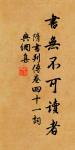 書無不可讀者
隋書列傳卷四十一詞
典網喜